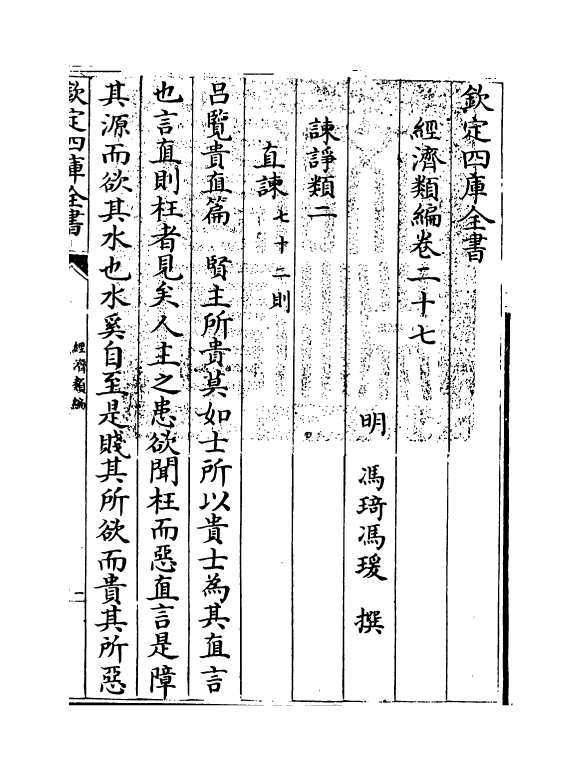 欽定四庫全書
經濟類編卷二十七
明　馮琦馮瑗　撰
諫諍類二
直諫七十二則
呂覽貴直篇　賢主所貴莫如士所以貴士為其直言
也言直則枉者見矣人主之患欲聞枉而惡直言是障
其源而欲其水也水奚自至是賤其所欲而貴其所惡
欽定四庫全書
經濟類編